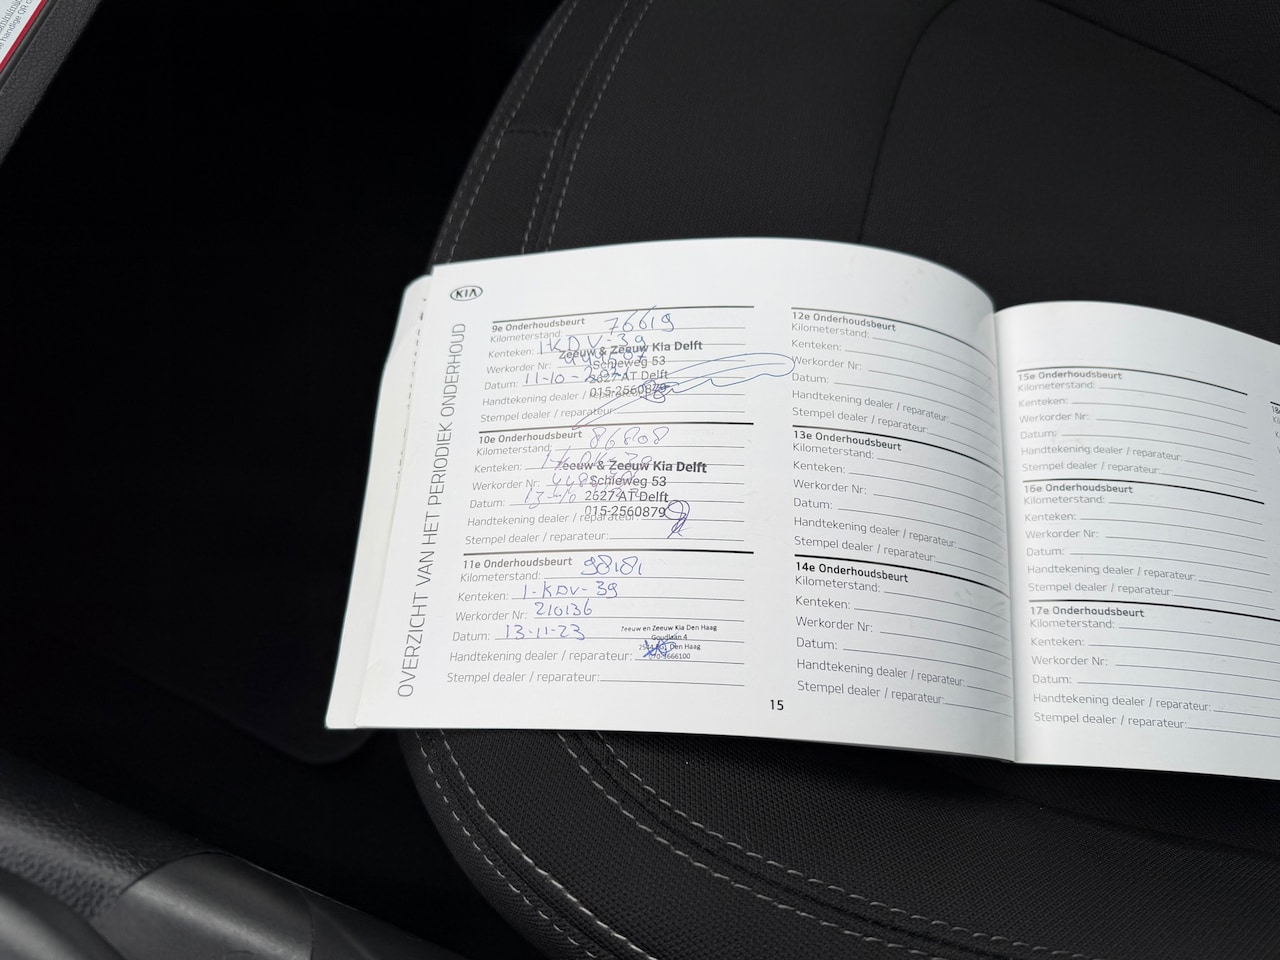 KIA
OVERZICHT VAN HET PERIODIEK ONDERHOUD
9e Onderhoudsbeurt
Kilometerstand: 76619
Kenteken: 1KDV-39
Zeeuw & Zeeuw Kia Delft
Werkorder Nr:
Schieweg 53
Datum: 11-10-
2627 AT Delft
015-2560879
Handtekening dealer / reparateur:
Stempel dealer / reparateur:
10e Onderhoudsbeurt
Kilometerstand: 86808
Kenteken:
Zeeuw & Zeeuw Kia Delft
Werkorder Nr:
Schieweg 53
Datum:
2627 AT Delft
015-2560879
Handtekening dealer / reparateur:
Stempel dealer / reparateur:
11e Onderhoudsbeurt
Kilometerstand: 98181
Kenteken: 1-KDV-39
Werkorder Nr: 210136
Datum: 13-11-23
Zeeuw en Zeeuw Kia Den Haag
Goudlaan 4
Den Haag
Handtekening dealer / reparateur:
Stempel dealer / reparateur:
12e Onderhoudsbeurt
Kilometerstand:
Kenteken:
Werkorder Nr:
Datum:
Handtekening dealer / reparateur:
Stempel dealer / reparateur:
13e Onderhoudsbeurt
Kilometerstand:
Kenteken:
Werkorder Nr:
Datum:
Handtekening dealer / reparateur:
Stempel dealer / reparateur:
14e Onderhoudsbeurt
Kilometerstand:
Kenteken:
Werkorder Nr:
Datum:
Handtekening dealer / reparateur:
Stempel dealer / reparateur:
15
15e Onderhoudsbeurt
Kilometerstand:
Kenteken:
Werkorder Nr:
Datum:
Handtekening dealer / reparateur:
Stempel dealer / reparateur:
16e Onderhoudsbeurt
Kilometerstand:
Kenteken:
Werkorder Nr:
Datum:
Handtekening dealer / reparateur:
Stempel dealer / reparateur:
17e Onderhoudsbeurt
Kilometerstand:
Kenteken:
Werkorder Nr:
Datum:
Handtekening dealer / reparateur:
Stempel dealer / reparateur: